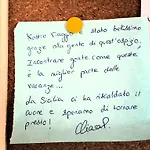 Kostro Raggio è stato bellissimo
grazie alla gente di quest'ospizio,
Incontrare gente come queste
è la miglior parte delle
vacanze...
da Sicilia ci ha riscaldato il
cuore e speriamo di tornare
presto!
Chiara P.